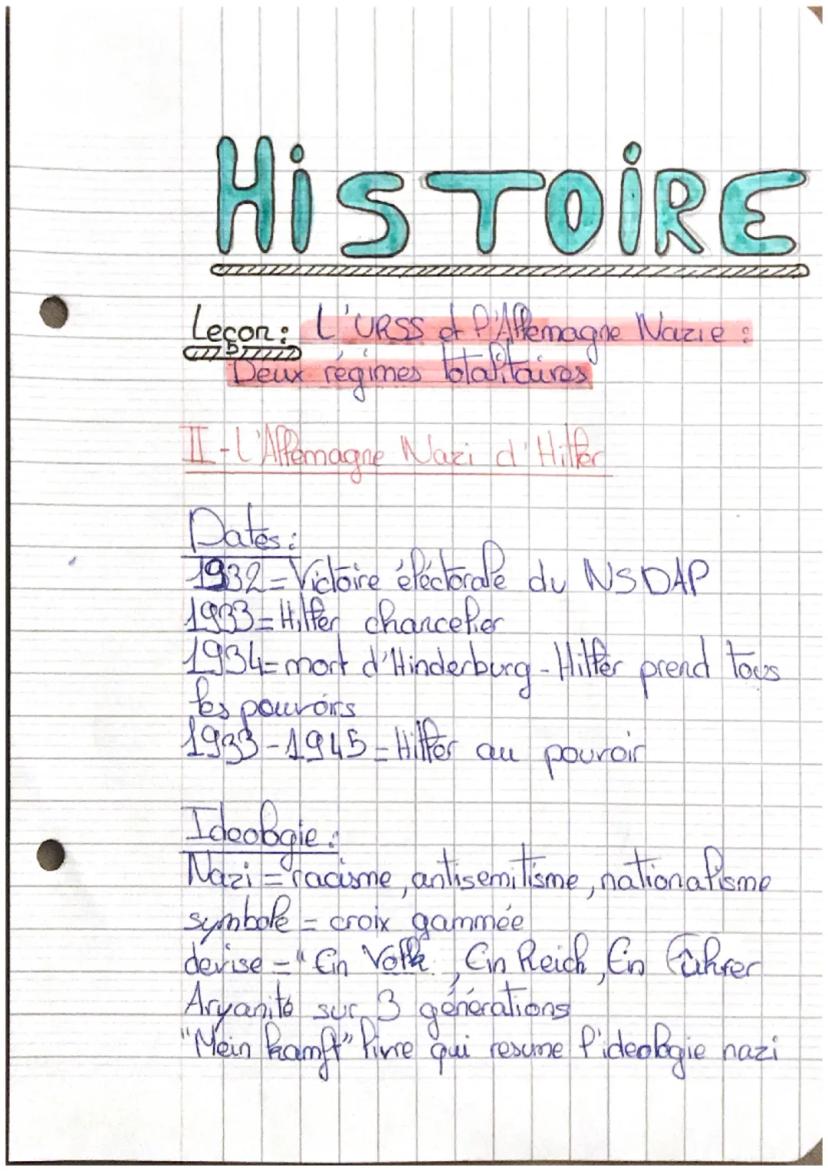 HiSTOiRE
Leçon: L'URSS et l'Allemagne Nazie :
5
Deux régimes totalitaires
II-L'Allemagne Nazi d'Hitler
Dates:
1932=Victoire éléctorale du NSDAP
1933=Hitler chancelier
1934=mort d'Hinderburg-Hitler prend tous
les pouvoirs
1933-1945=Hitler au pouvoir
Ideologie:
Nazi=racisme, antisemitisme, nationalisme
symbole = croix gammée
devise = "Ein Volk, Ein Reich, Ein Führer
Aryanité sur 3 générations
"Mein kamft" livre qui resume l'ideologie nazi